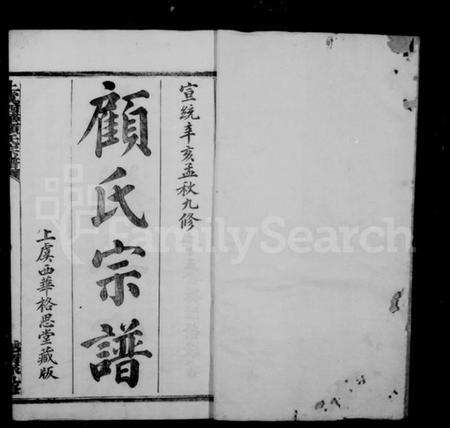 宣統辛亥孟秋九修
顧氏宗譜
上虞西華格思堂藏版
FamilySearch